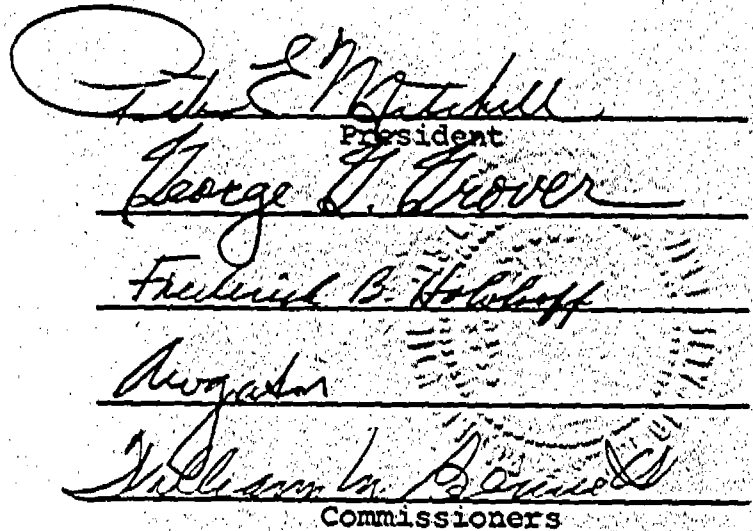 Peter E Mitchell
President
George G. Grover
Frederick B. Holoboff
William M. Bennett
Commissioners